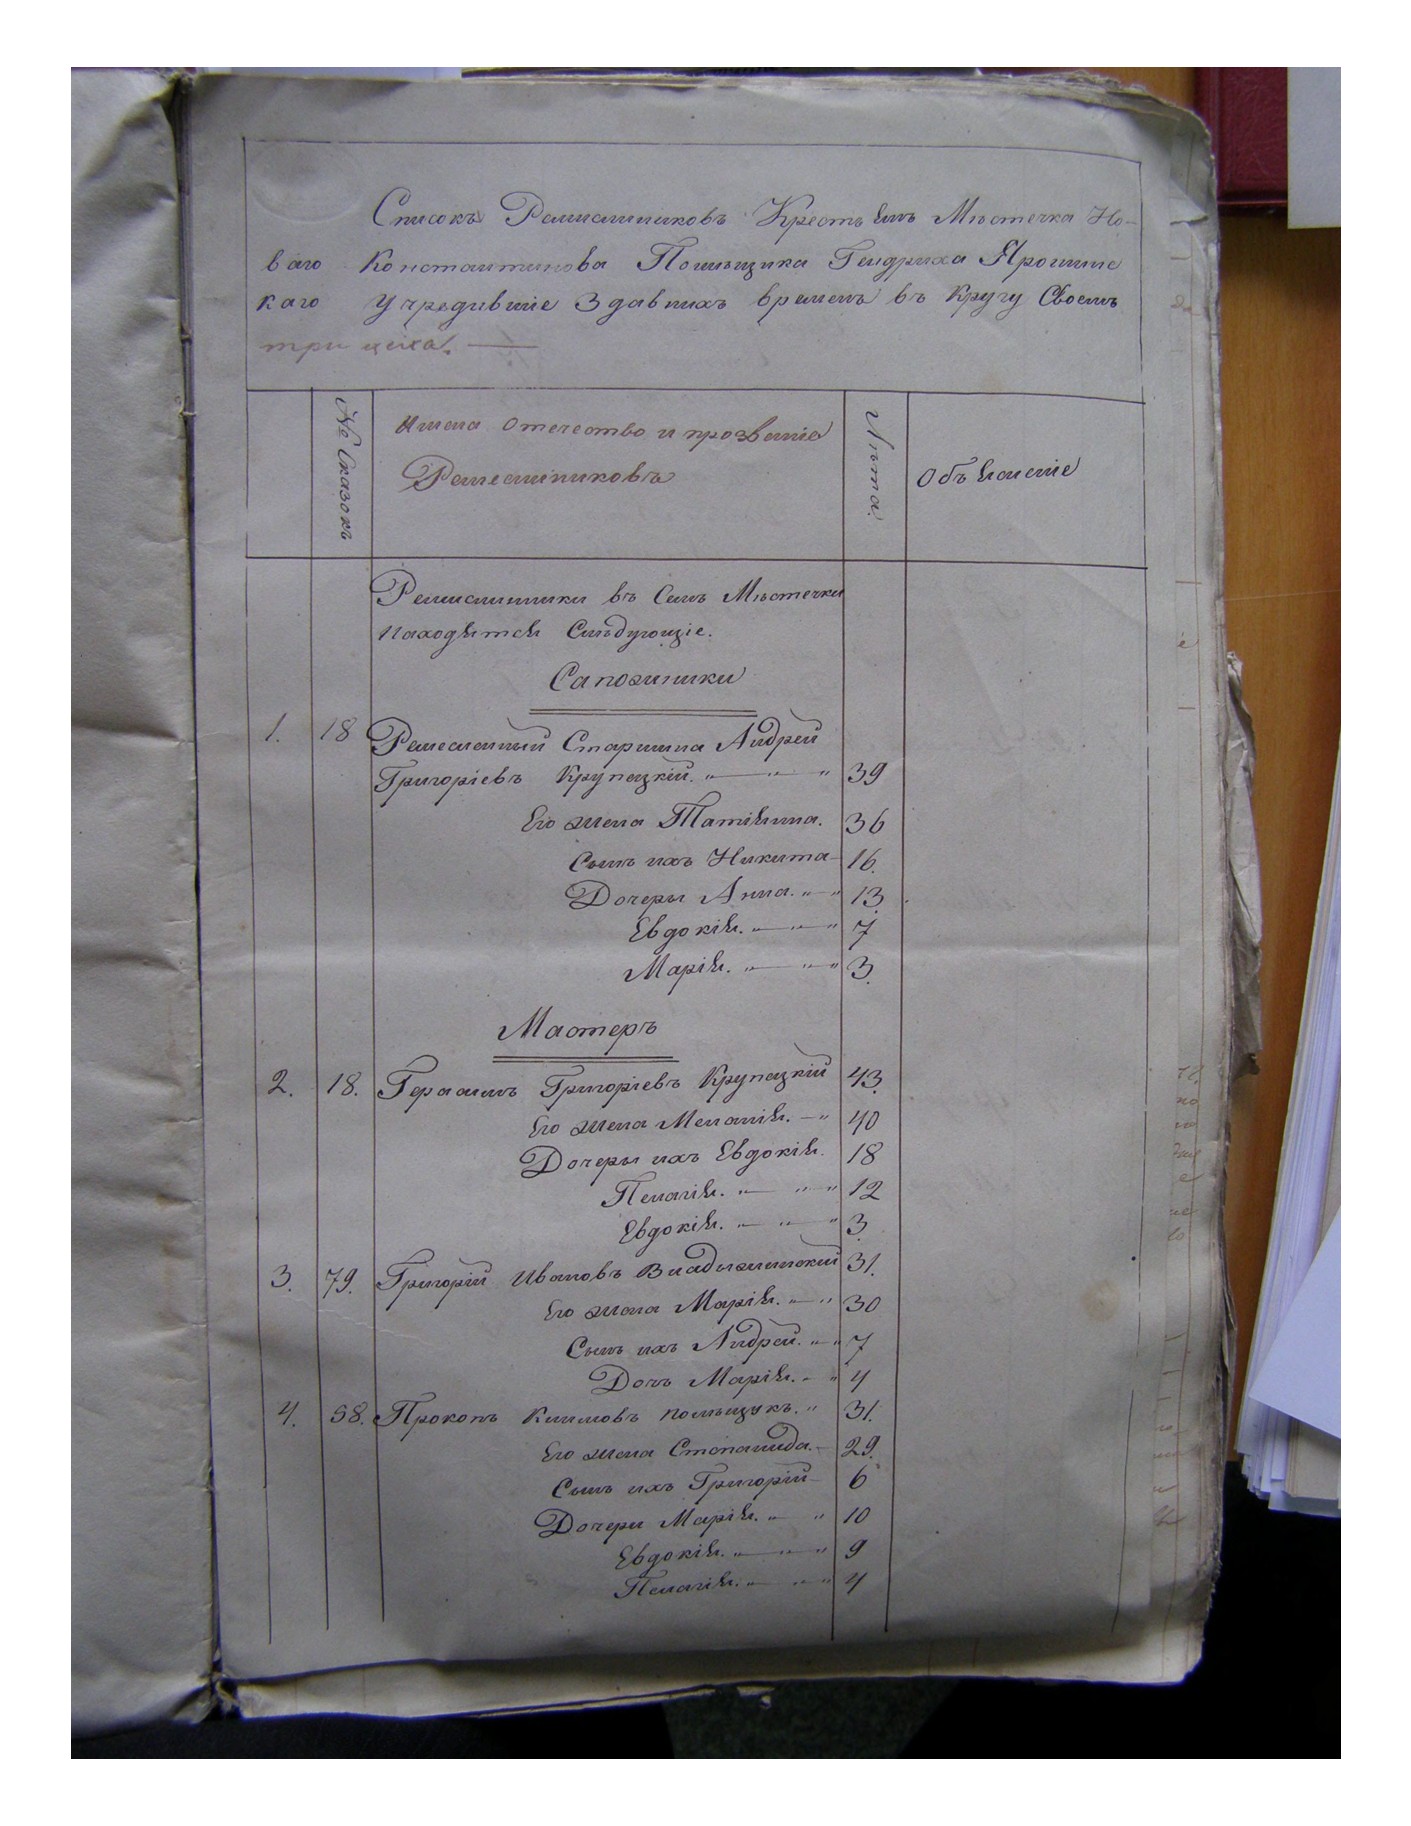 Списокъ Ремисниковъ Крестьянъ Мѣстечка Но-
ваго Константинова Помѣщика Гендриха Ярошинс
каго Учредившіе Здавнихъ временъ въ Кругу Своемъ
три цеха.
№ Сказокъ
Имена Отечество и прозваніе
Ремесниковъ
Лѣта.
Объясненіе
Ремисники въ Семъ Мѣстечки
Находятся Слѣдующіе.
Сапожники
1. 18 Ремесленный Старшина Андрей
Григоріевъ Крупецкій. 39
Его жена Татіяна. 36
Сынъ ихъ Никита 16.
Дочеры Анна. 13.
Евдокія. 7
Марія. 3.
Мастеръ
2. 18. Герасимъ Григоріевъ Крупецкій 43.
Его жена Меланія. 40
Дочеры ихъ Евдокія. 18
Пелагія. 12
Евдокія. 3.
3. 79. Григорій Ивановъ Владыжинский 31.
Его жена Марія. 30
Сынъ ихъ Андрей. 7
Дочъ Марія. 4
4. 58. Прокопъ Климовъ Полѣщукъ. 31.
Его жена Степанида. 29.
Сынъ ихъ Григорій 6
Дочери Марія. 10
Евдокія. 9
Пелагія. 4